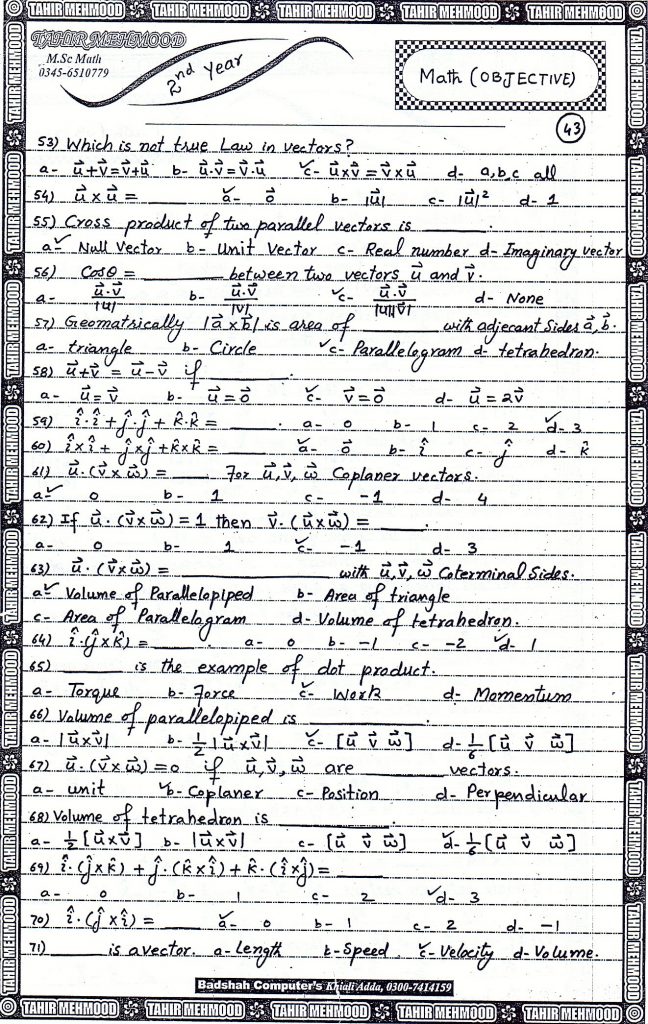 TAHIR MEHMOOD TAHIR MEHMOOD TAHIR MEHMOOD TAHIR MEHMOOD TAHIR MEHMOOD
TAHIR MEHMOOD
M.Sc Math
0345-6510779
2nd Year
Math (OBJECTIVE)
43
53) Which is not true Law in vectors?
a- u⃗+v⃗=v⃗+u⃗ b- u⃗.v⃗=v⃗.u⃗ ✓c- u⃗×v⃗=v⃗×u⃗ d- a,b,c all
54) u⃗×u⃗ = ____ ✓a- o⃗ b- |u⃗| c- |u⃗|² d- 1
55) Cross product of two parallel vectors is ____.
a-✓ Null Vector b- Unit Vector c- Real number d- Imaginary vector
56) Cosθ = ____ between two vectors u⃗ and v⃗.
a- u⃗.v⃗/|u⃗| b- u⃗.v⃗/|v⃗| ✓c- u⃗.v⃗/|u⃗||v⃗| d- None
57) Geomatrically |a⃗×b⃗| is area of ____ with adjecant Sides a⃗,b⃗.
a- triangle b- Circle ✓c- Parallelogram d- tetrahedron.
58) u⃗+v⃗ = u⃗-v⃗ if ____.
a- u⃗=v⃗ b- u⃗=o⃗ ✓c- v⃗=o⃗ d- u⃗=2v⃗
59) î.î + ĵ.ĵ + k̂.k̂ = ____. a- 0 b- 1 c- 2 ✓d- 3
60) î×î + ĵ×ĵ + k̂×k̂ = ____ ✓a- o⃗ b- î c- ĵ d- k̂
61) u⃗.(v⃗×w⃗) = ____ For u⃗,v⃗,w⃗ Coplaner vectors.
a-✓ 0 b- 1 c- -1 d- 4
62) If u⃗.(v⃗×w⃗)=1 then v⃗.(u⃗×w⃗) = ____.
a- 0 b- 1 ✓c- -1 d- 3
63) u⃗.(v⃗×w⃗) = ____ with u⃗,v⃗,w⃗ Coterminal Sides.
a-✓ Volume of Parallelopiped b- Area of triangle
c- Area of Parallelogram d- Volume of tetrahedron.
64) î.(ĵ×k̂) = ____. a- 0 b- -1 c- -2 ✓d- 1
65) ____ is the example of dot product.
a- Torque b- Force ✓c- Work d- Momentum
66) Volume of parallelopiped is ____.
a- |u⃗×v⃗| b- ½|u⃗×v⃗| ✓c- [u⃗ v⃗ w⃗] d- 1/6[u⃗ v⃗ w⃗]
67) u⃗.(v⃗×w⃗)=0 if u⃗,v⃗,w⃗ are ____ vectors.
a- unit ✓b- Coplaner c- Position d- Perpendicular
68) Volume of tetrahedron is ____.
a- ½[u⃗×v⃗] b- |u⃗×v⃗| c- [u⃗ v⃗ w⃗] ✓d- 1/6[u⃗ v⃗ w⃗]
69) î.(ĵ×k̂) + ĵ.(k̂×î) + k̂.(î×ĵ) = ____
a- 0 b- 1 c- 2 ✓d- 3
70) î.(ĵ×î) = ____ ✓a- 0 b- 1 c- 2 d- -1
71) ____ is a vector. a- Length b- Speed ✓c- Velocity d- Volume.
Badshah Computer's Khiali Adda, 0300-7414159
TAHIR MEHMOOD TAHIR MEHMOOD TAHIR MEHMOOD TAHIR MEHMOOD TAHIR MEHMOOD